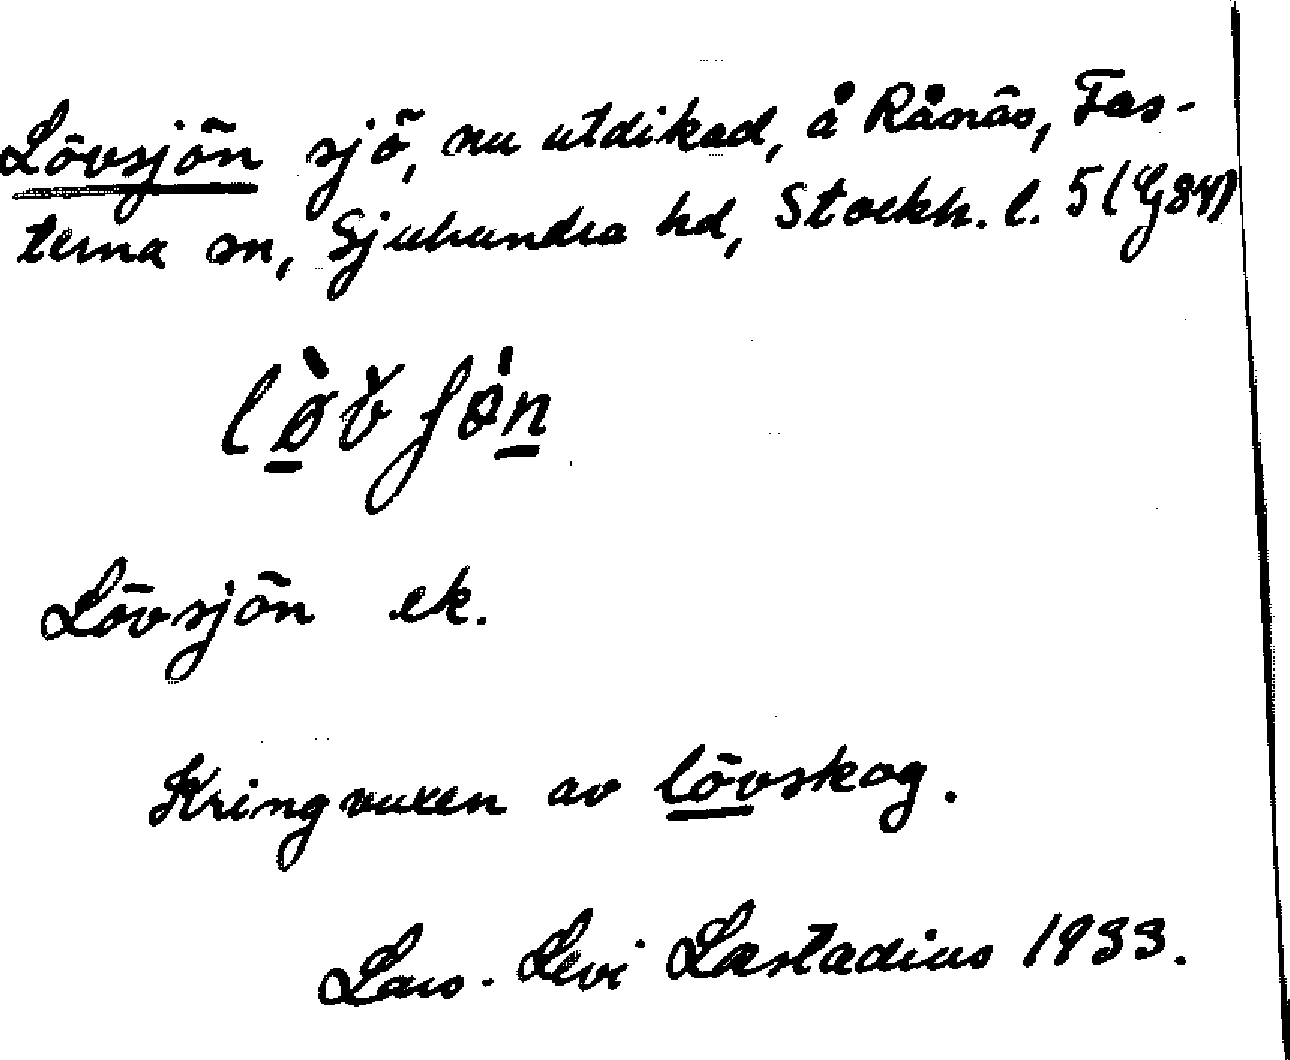 Lövsjön sjö, nu utdikad, å Rånäs, Fas-
terna sn, Sjuhundra hd, Stockh. l. 5 (G84)
Lövsjön ek.
Kringvuxen av lövskog.
Lars-Levi Læstadius 1933.